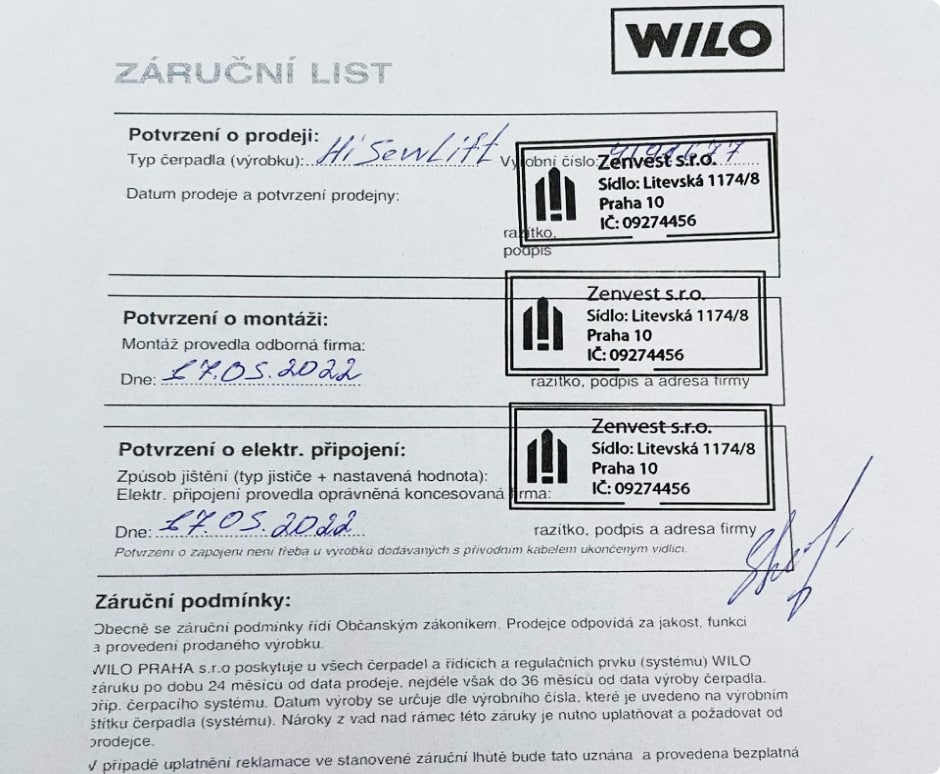 WILO
ZÁRUČNÍ LIST
Potvrzení o prodeji:
Typ čerpadla (výrobku): HiSewLift Výrobní číslo:
Datum prodeje a potvrzení prodejny:
Zenvest s.r.o.
Sídlo: Litevská 1174/8
Praha 10
IČ: 09274456
razítko,
podpis
Potvrzení o montáži:
Montáž provedla odborná firma:
Dne: 17.05.2022
Zenvest s.r.o.
Sídlo: Litevská 1174/8
Praha 10
IČ: 09274456
razítko, podpis a adresa firmy
Potvrzení o elektr. připojení:
Způsob jištění (typ jističe + nastavená hodnota):
Elektr. připojení provedla oprávněná koncesovaná firma:
Dne: 17.05.2022
Zenvest s.r.o.
Sídlo: Litevská 1174/8
Praha 10
IČ: 09274456
razítko, podpis a adresa firmy
Potvrzení o zapojení není třeba u výrobku dodávaných s přívodním kabelem ukončeným vidlicí.
Záruční podmínky:
Obecně se záruční podmínky řídí Občanským zákoníkem. Prodejce odpovídá za jakost, funkci
a provedení prodaného výrobku.
WILO PRAHA s.r.o poskytuje u všech čerpadel a řídících a regulačních prvku (systému) WILO
záruku po dobu 24 měsíců od data prodeje, nejdéle však do 36 měsíců od data výroby čerpadla.
příp. čerpacího systému. Datum výroby se určuje dle výrobního čísla, které je uvedeno na výrobním
štítku čerpadla (systému). Nároky z vad nad rámec této záruky je nutno uplatňovat a požadovat od
prodejce.
V případě uplatnění reklamace ve stanovené záruční lhůtě bude tato uznána a provedena bezplatná